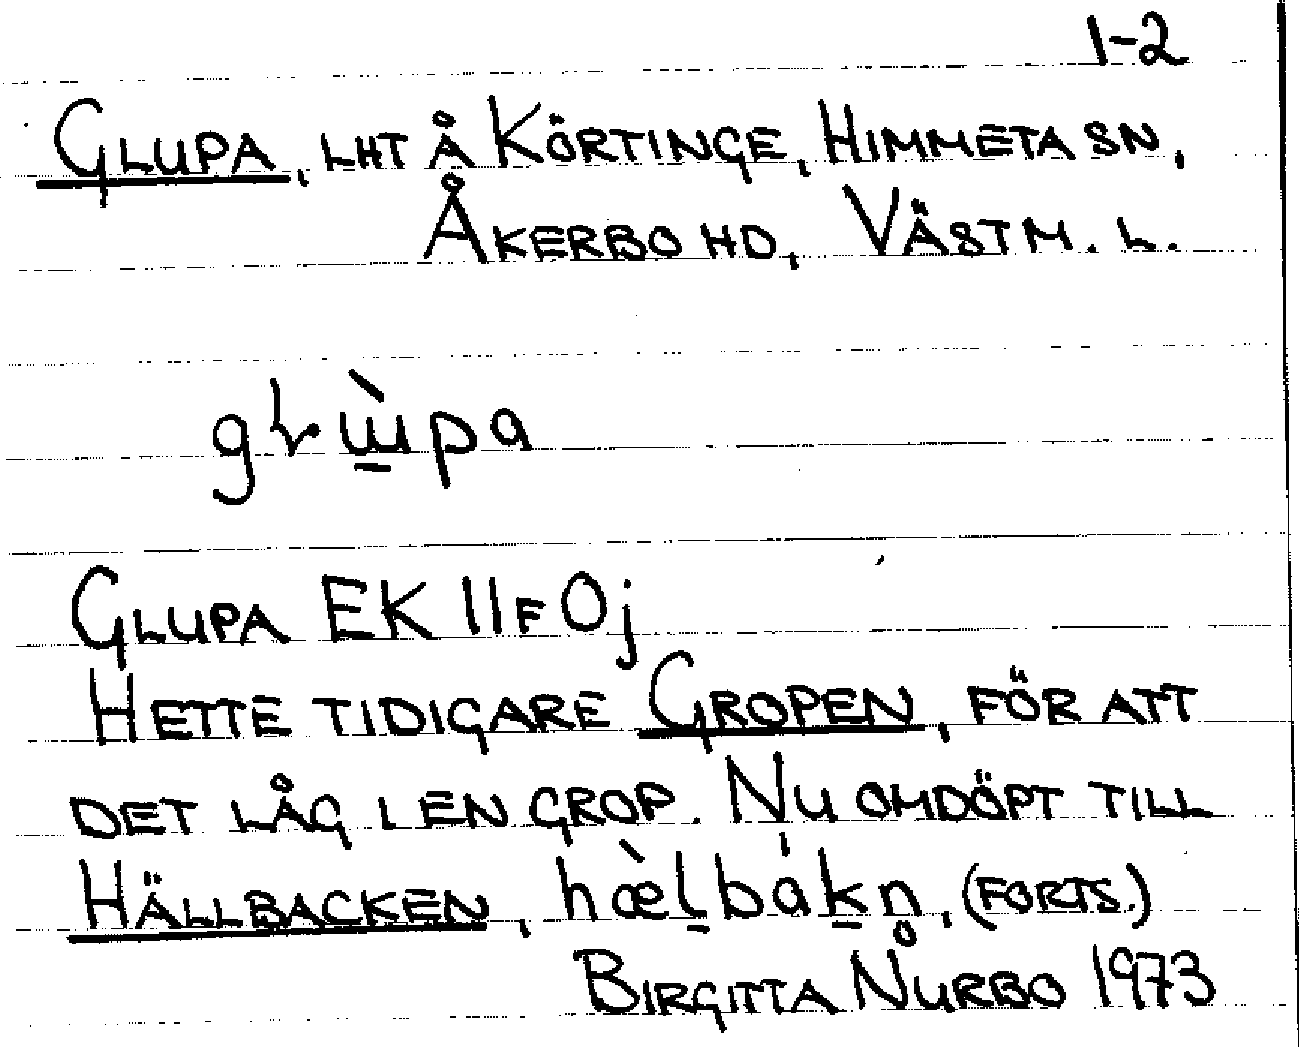 1-2
GLUPA, LHT Å KÖRTINGE, HIMMETA SN,
ÅKERBO HD, VÄSTM. L.
GLUPA EK 11F0j
HETTE TIDIGARE GROPEN, FÖR ATT
DET LÅG I EN GROP. NU OMDÖPT TILL
HÄLLBACKEN, hæ̀l̠bák̠n̥, (FORTS.)
BIRGITTA NURBO 1973